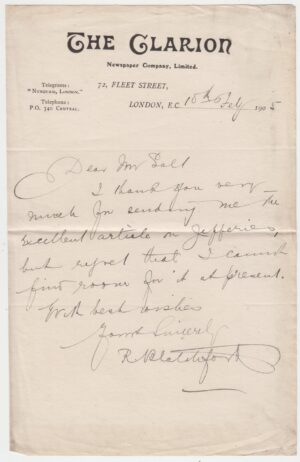 THE CLARION
Newspaper Company, Limited.
Telegrams:
"NUNQUAM, LONDON."
Telephone:
P.O. 740 CENTRAL.
72, FLEET STREET,
LONDON, E.C. 10th Feby 1905
Dear Mr Salt
I thank you very
much for sending me the
excellent article on Jefferies,
but regret that I cannot
find room for it at present.
With best wishes
Yours Sincerely
R. Blatchford